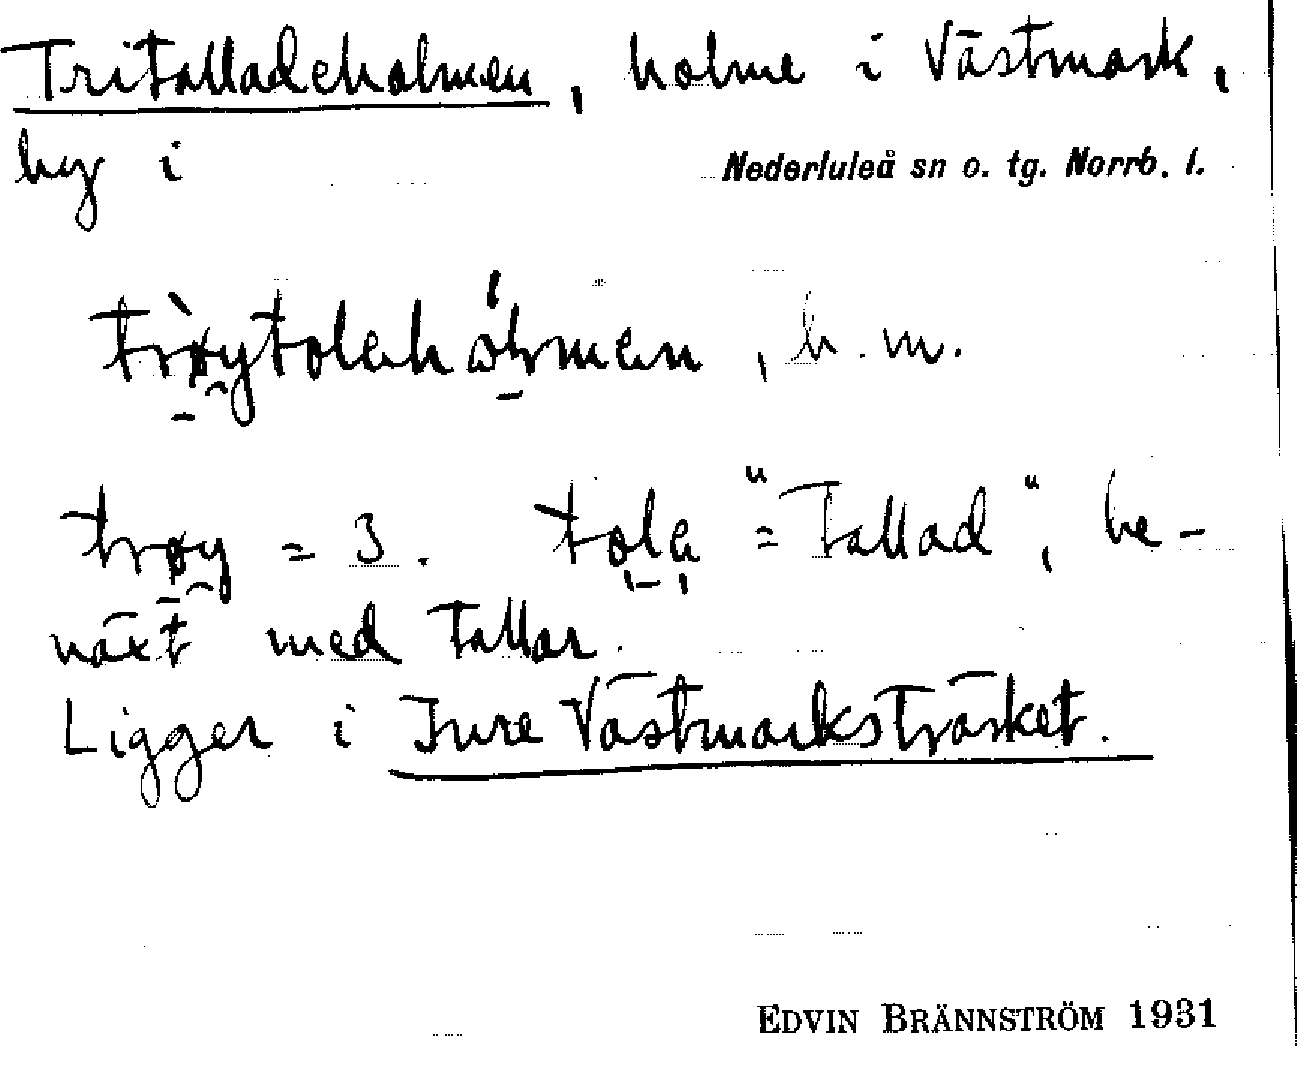 Tritalladeholmen, holme i Västmark,
by i Nederluleå sn o. tg. Norrb. l.
trøytolahólmen, h. m.
trøy = 3. tola = "Tallad", be-
växt med tallar.
Ligger i Inre Västmarksträsket.
EDVIN BRÄNNSTRÖM 1931